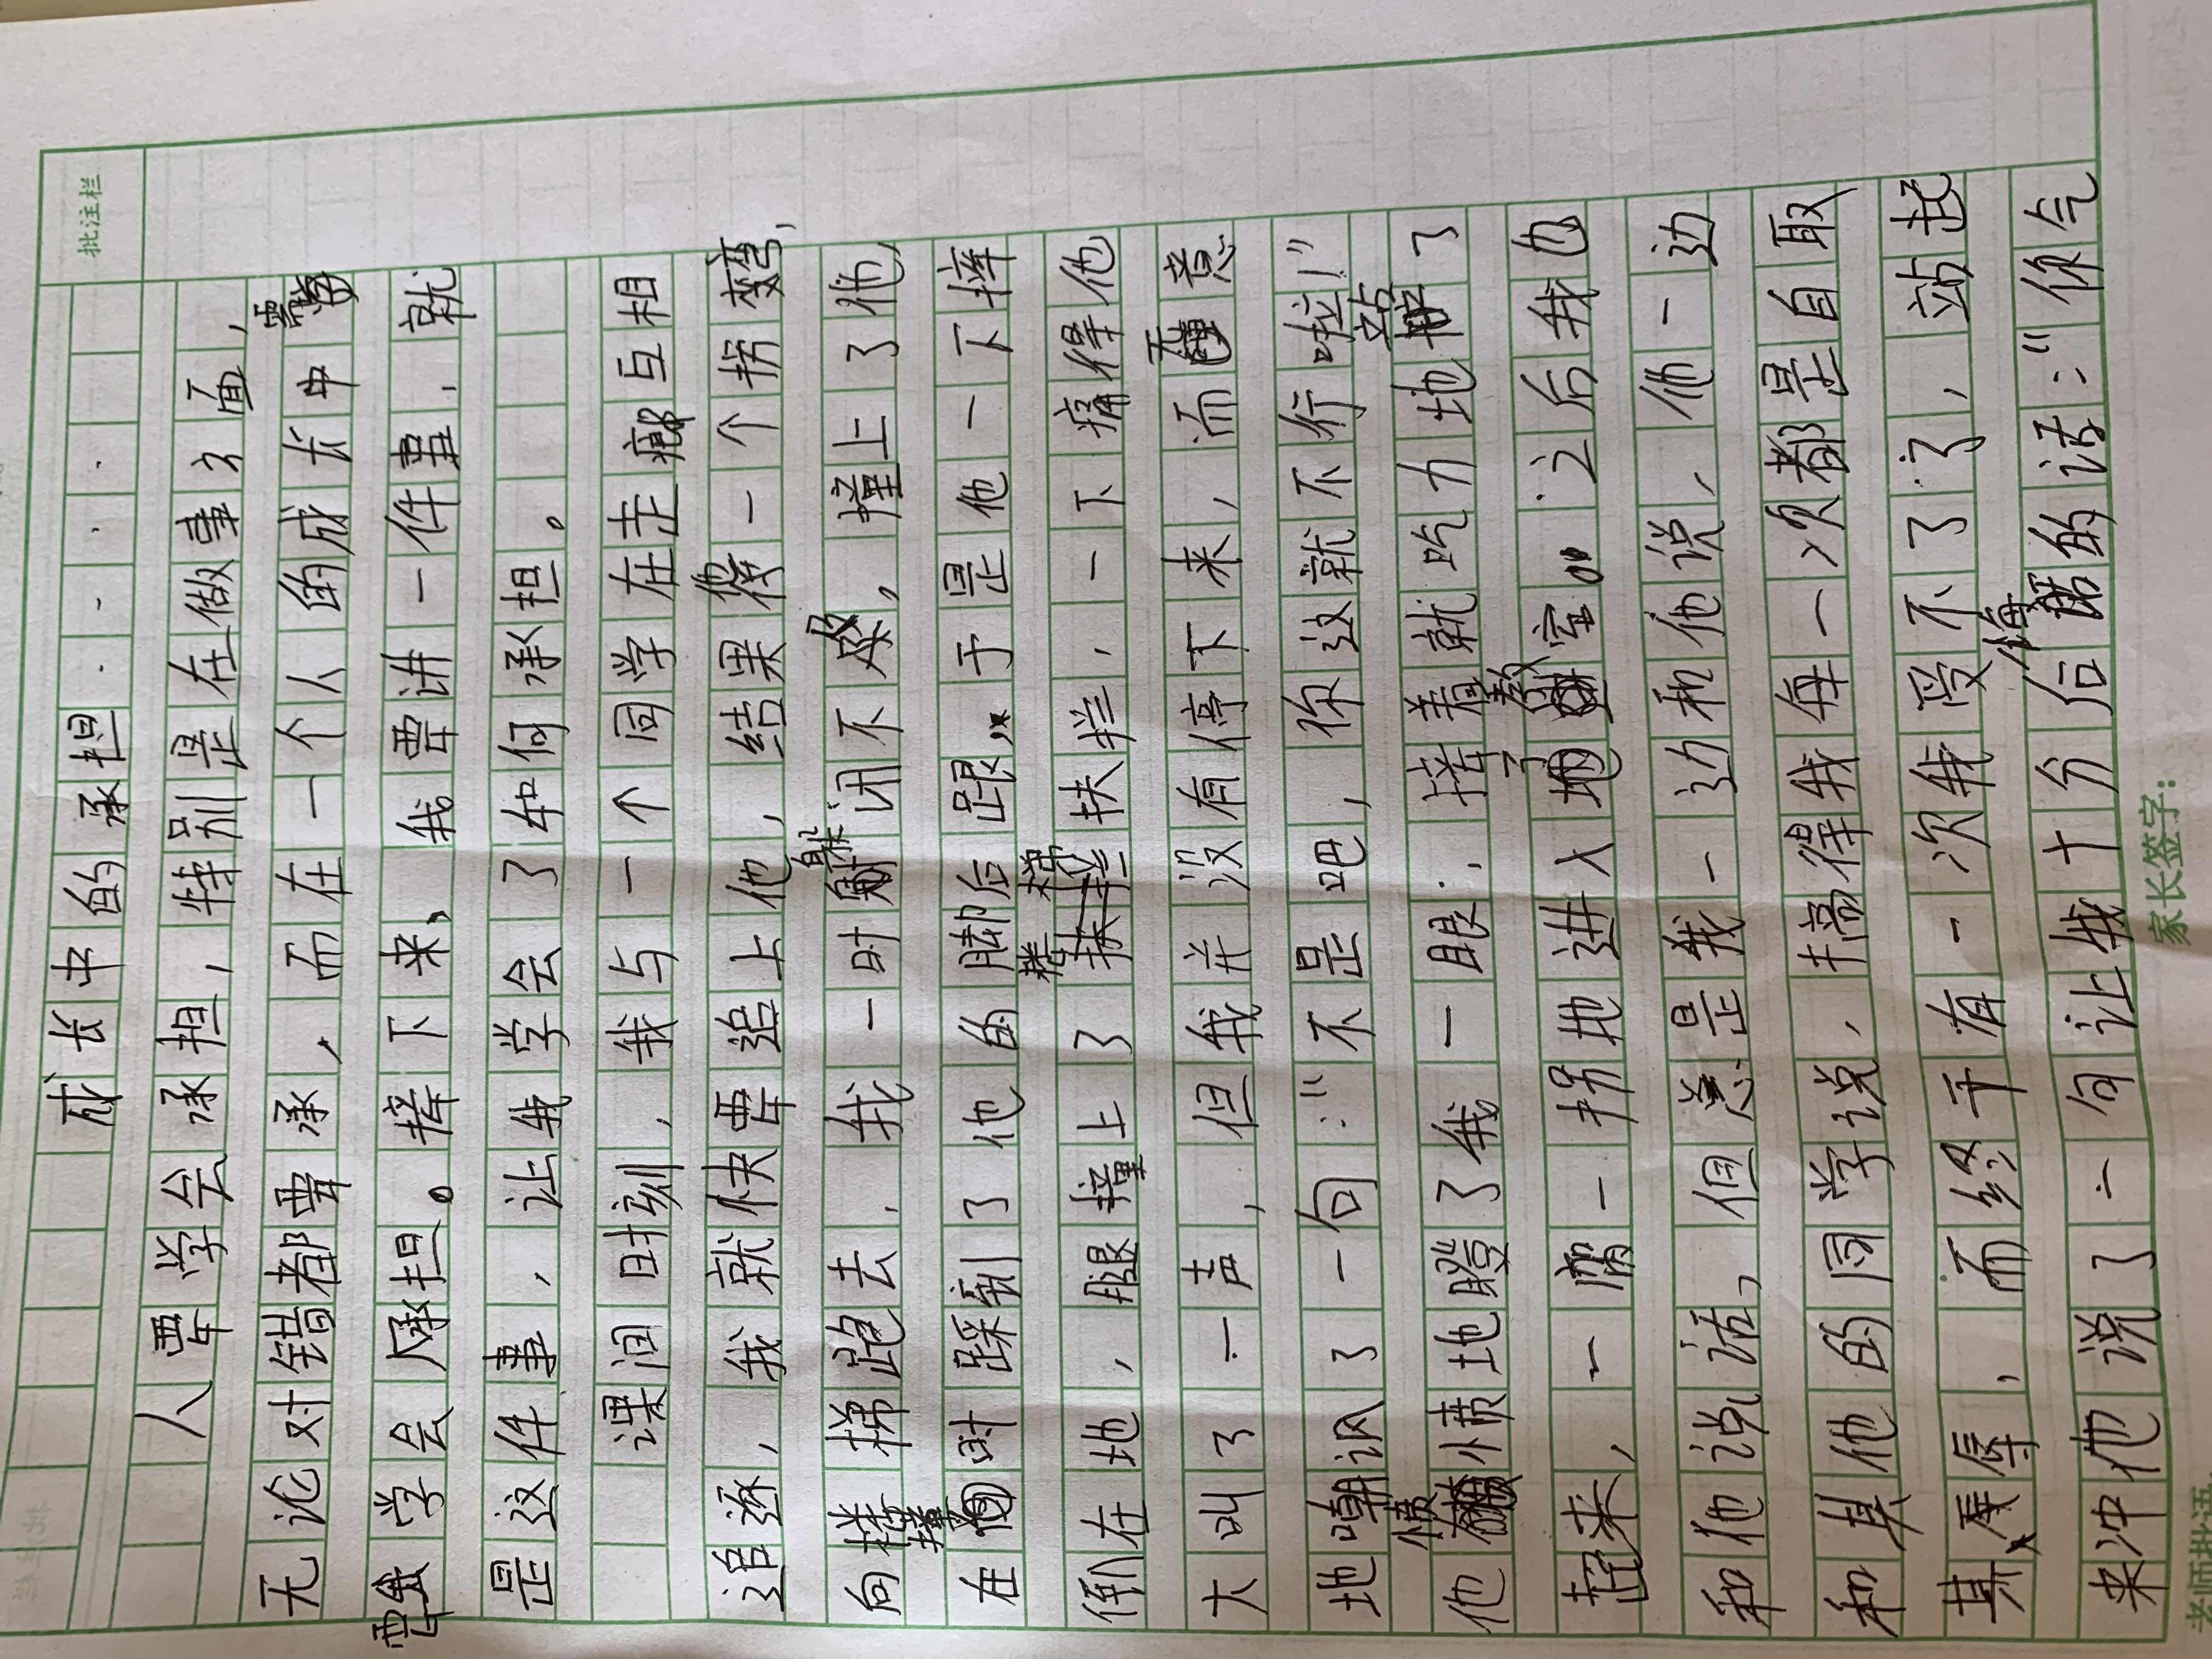 批注栏
成长中的承担
人要学会承担，特别是在做事方面，
无论对错都要承，而在一个人的成长中需
要学会承担。接下来，我要讲一件事，就
是这件事，让我学会了如何承担。
课间时刻，我与一个同学在走廊互相
追逐，我就快要追上他，结果他一个拐弯，
向楼梯跑去，我一时躲闭不及，撞上了他，
在同时踩到了他的脚后跟，于是他一下摔
倒在地，腿撞上了楼梯扶拦，一下痛得他
大叫了一声，但我并没有停下来，而无意
地嘲讽了一句：“不是吧，你这就不行啦！”
他愤愤地瞪了我一眼，接着就吃力地站了
起来，一瘸一拐地进入了教室。之后我也
和他说话，但总是我一边和他说，他一边
和其他的同学说，搞得我每一次都是自取
其辱，而终于有一次我受不了了，站起
来冲他说了一句让我十分后悔的话：“你气
家长签字：
老师批语